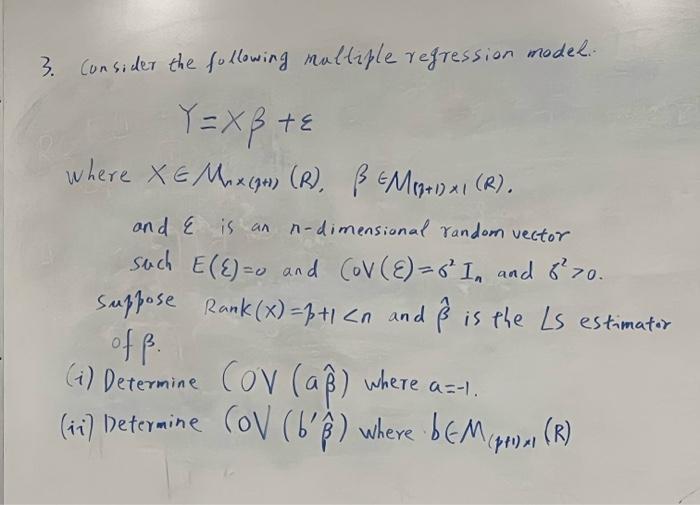 3. Consider the following multiple regression model.
Y = Xβ + ε
where X ∈ M_{n×(p+1)} (R), β ∈ M_{(p+1)×1} (R).
and ε is an n-dimensional random vector
such E(ε)=0 and COV(ε)=σ² I_n and σ²>0.
Suppose Rank(X)=p+1<n and β̂ is the LS estimator
of β.
(i) Determine COV (aβ̂) where a=-1.
(ii) Determine COV (b'β̂) where b∈M_{(p+1)×1} (R)